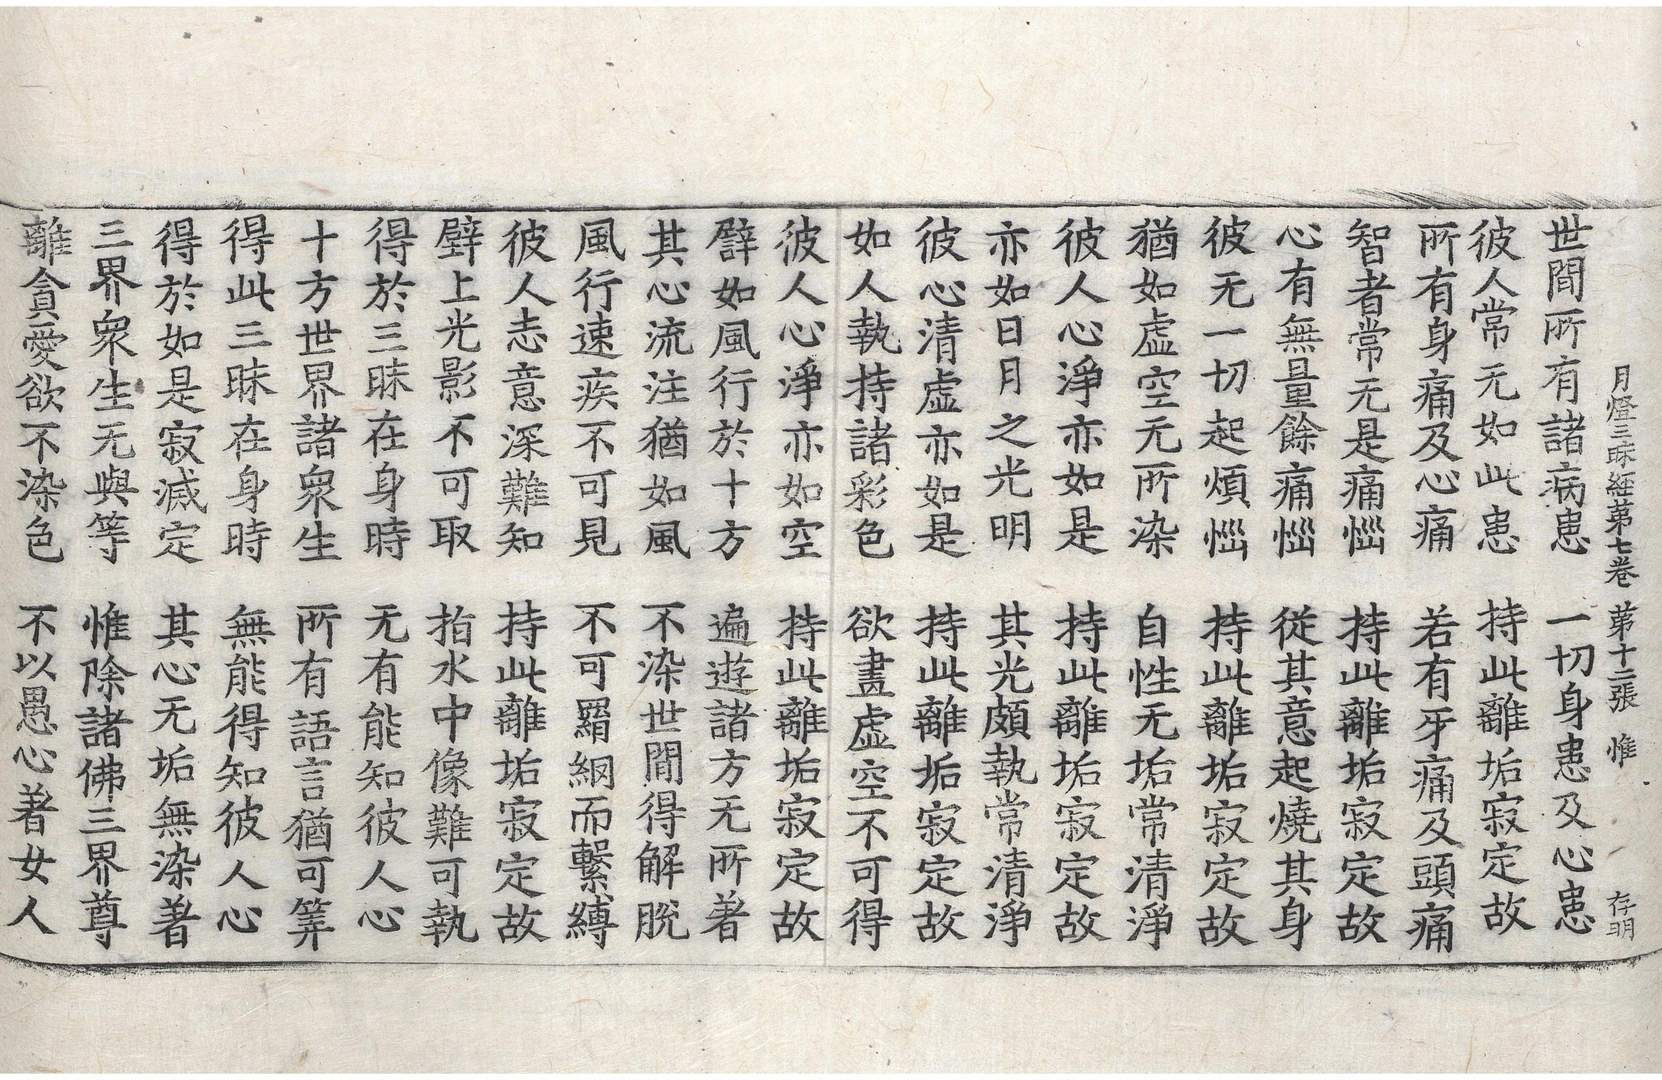 月燈三昧経苐七巻 苐十二張 惟 存明
世間所有諸病患 一切身患及心患
彼人常无如此患 持此離垢寂定故
所有身痛及心痛 若有牙痛及頭痛
智者常无是痛𢙉 持此離垢寂定故
心有無量餘痛𢙉 従其意起燒其身
彼无一切起煩𢙉 持此離垢寂定故
猶如虛空无所染 自性无垢常清淨
彼人心淨亦如是 持此離垢寂定故
亦如日月之光明 其光頗執常清淨
彼心清虛亦如是 持此離垢寂定故
如人執持諸彩色 欲畫虛空不可得
彼人心淨亦如空 持此離垢寂定故
譬如風行於十方 遍遊諸方无所著
其心流注猶如風 不染世間得解脫
風行速疾不可見 不可羂網而繫縛
彼人志意深難知 持此離垢寂定故
壁上光影不可取 拍水中像難可執
得於三昧在身時 无有能知彼人心
十方世界諸衆生 所有語言猶可筭
得此三昧在身時 無能得知彼人心
得於如是寂滅定 其心无垢無染著
三界衆生无與等 惟除諸佛三界尊
離貪愛欲不染色 不以愚心著女人